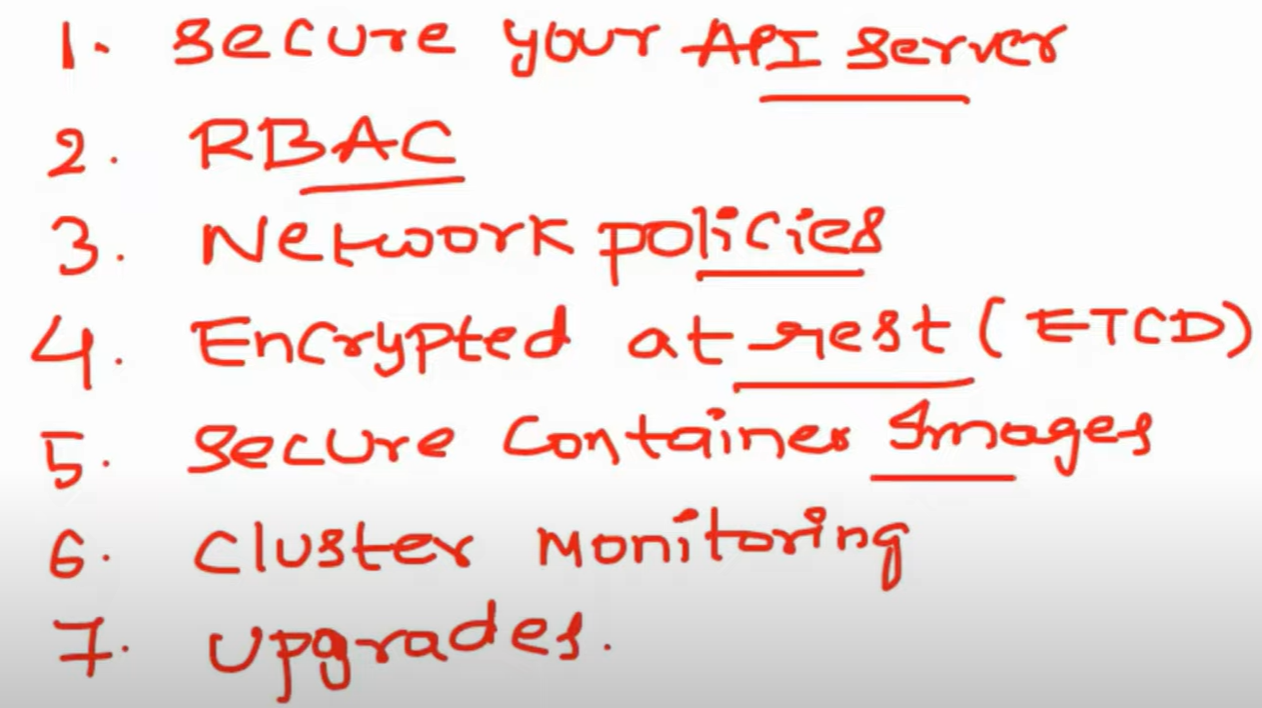 1. Secure your API server
2. RBAC
3. Network policies
4. Encrypted at rest (ETCD)
5. Secure Container Images
6. Cluster Monitoring
7. Upgrades.